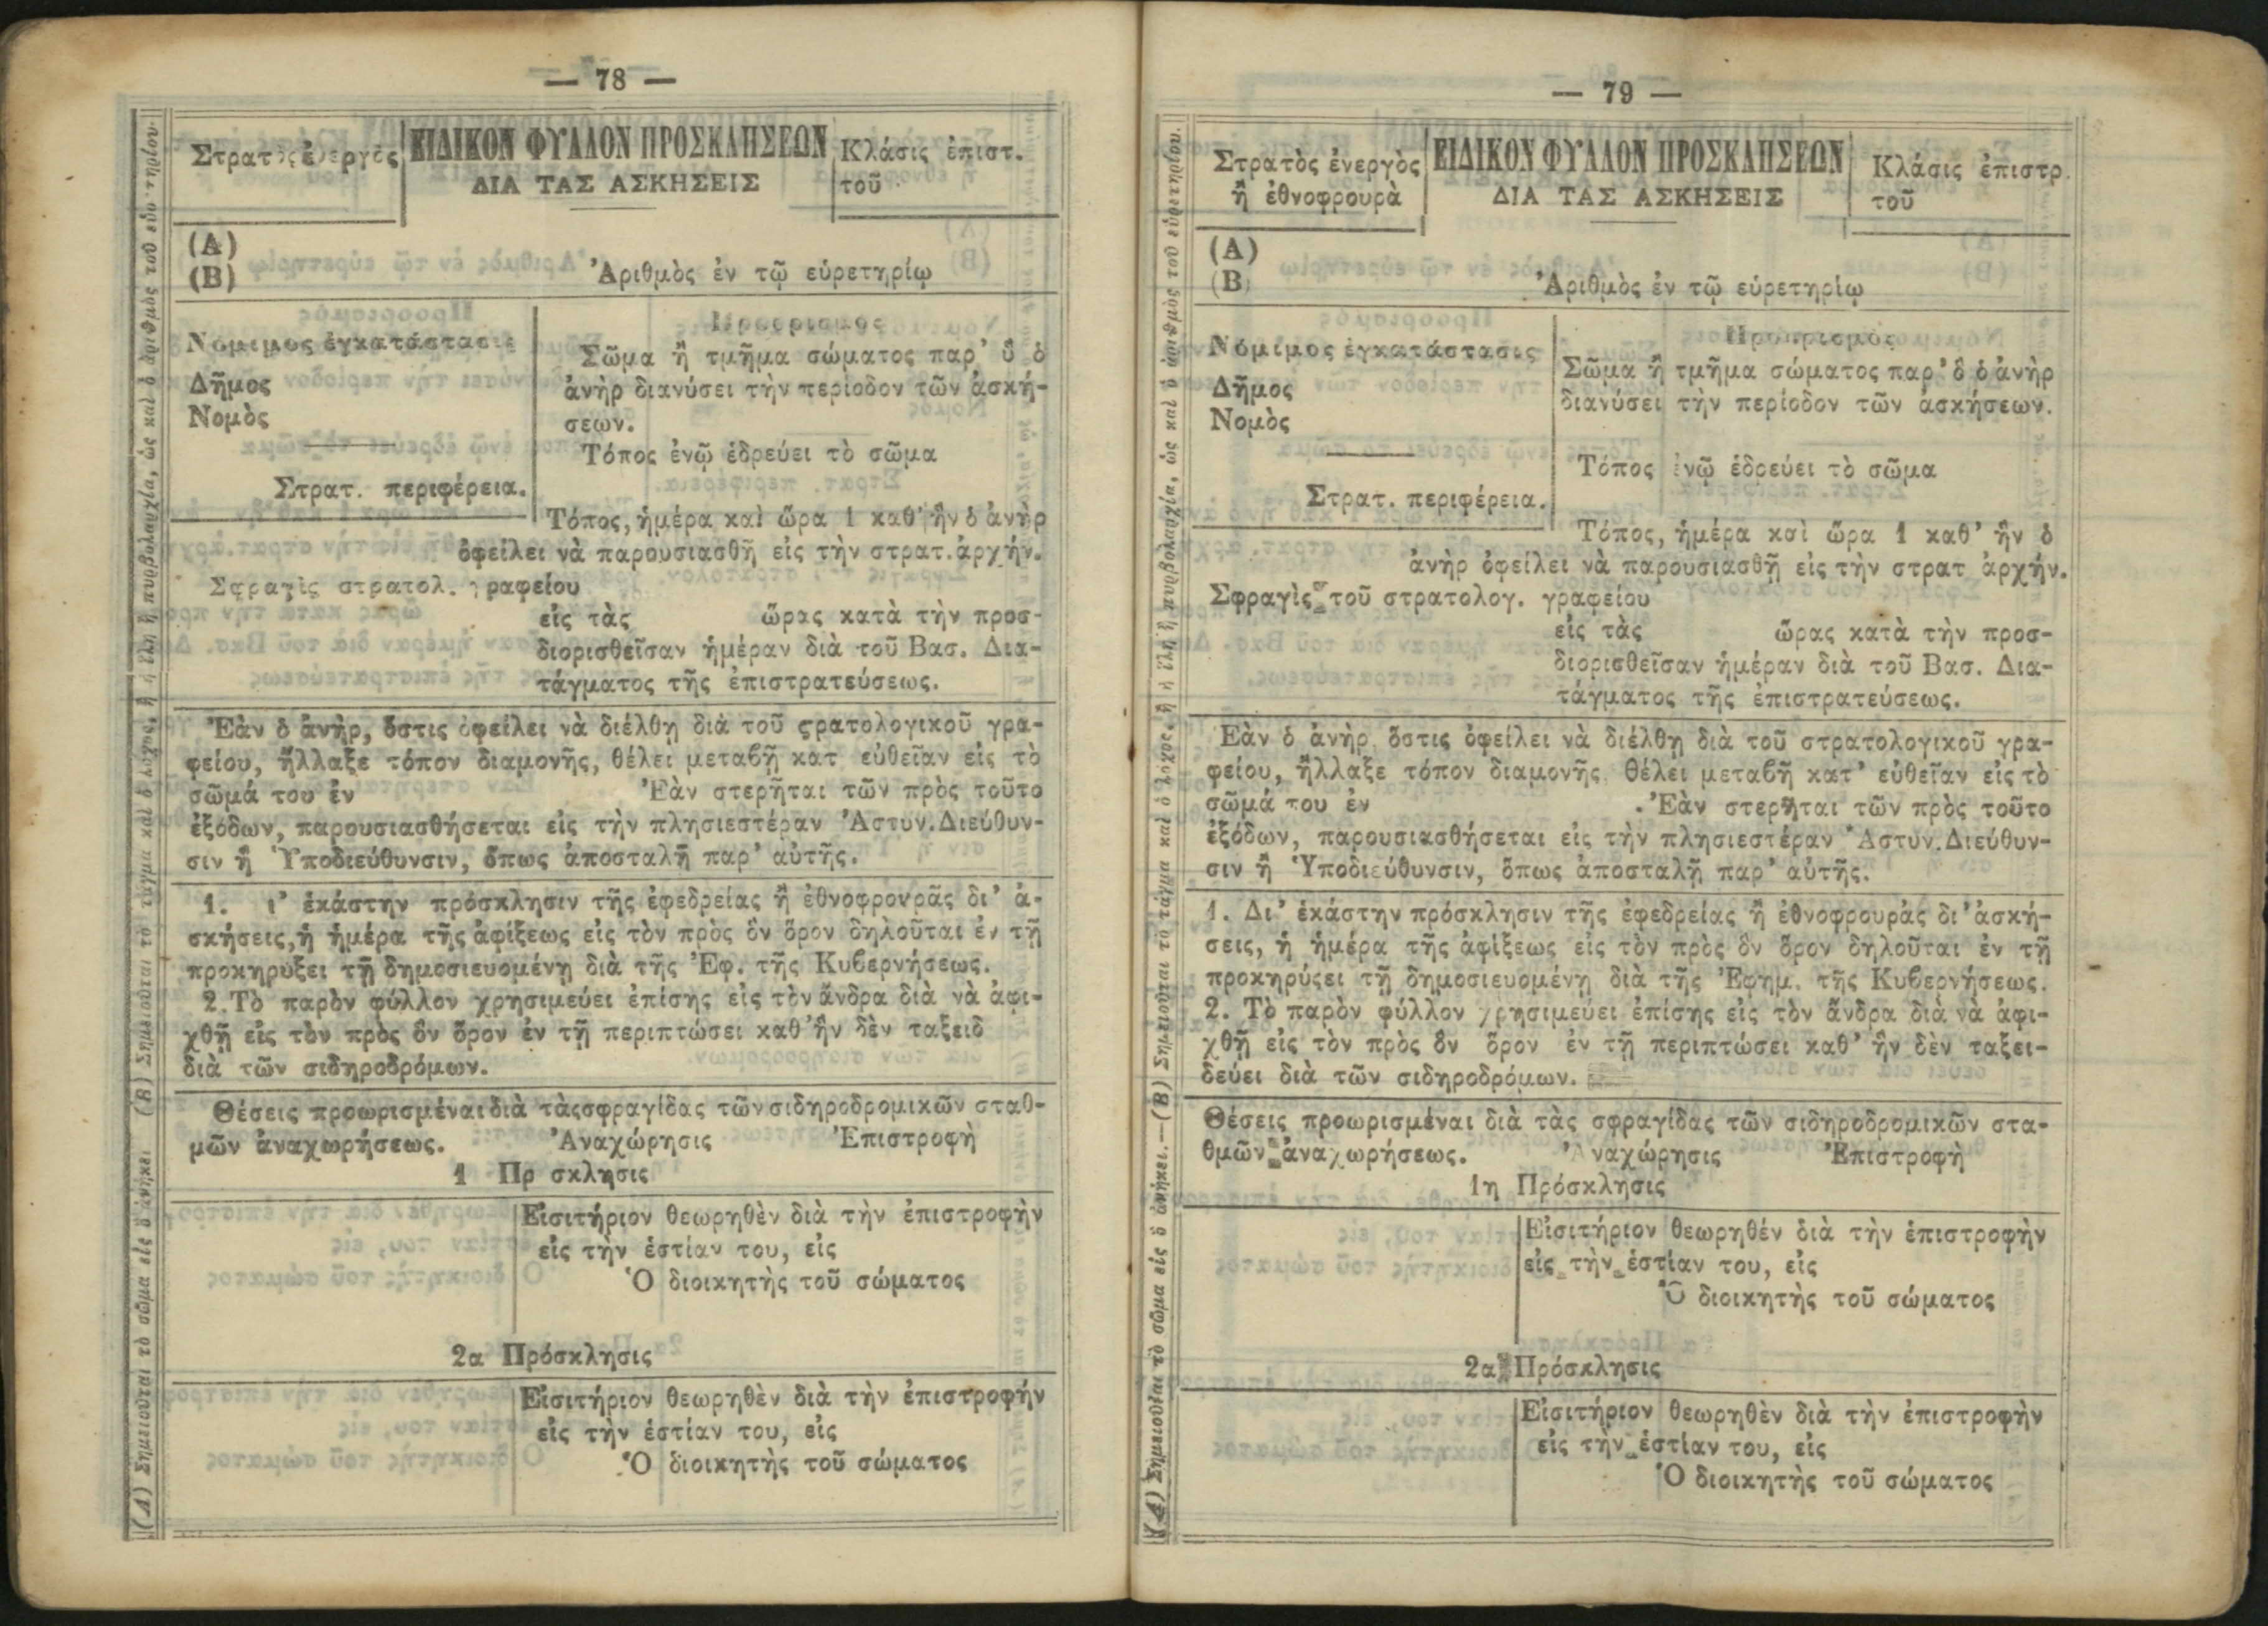 — 78 —
Στρατὸς ἐνεργὸς
ΕΙΔΙΚΟΝ ΦΥΛΛΟΝ ΠΡΟΣΚΛΗΣΕΩΝ
ΔΙΑ ΤΑΣ ΑΣΚΗΣΕΙΣ
Κλάσις ἐπιστ.
τοῦ
(Α)
(Β)
Ἀριθμὸς ἐν τῷ εὑρετηρίῳ
Νόμιμος ἐγκατάστασις
Δῆμος
Νομὸς
Στρατ. περιφέρεια.
Προορισμὸς
Σῶμα ἢ τμῆμα σώματος παρ' ᾧ ὁ
ἀνὴρ διανύσει τὴν περίοδον τῶν ἀσκή-
σεων.
Τόπος ἐνῷ ἑδρεύει τὸ σῶμα
Τόπος, ἡμέρα καὶ ὥρα 1 καθ' ἣν ὁ ἀνὴρ
ὀφείλει νὰ παρουσιασθῇ εἰς τὴν στρατ. ἀρχήν.
Σφραγὶς στρατολ. γραφείου
εἰς τὰς ὥρας κατὰ τὴν προσ-
διορισθεῖσαν ἡμέραν διὰ τοῦ Βασ. Δια-
τάγματος τῆς ἐπιστρατεύσεως.
Ἐὰν ὁ ἀνὴρ, ὅστις ὀφείλει νὰ διέλθῃ διὰ τοῦ ςρατολογικοῦ γρα-
φείου, ἤλλαξε τόπον διαμονῆς, θέλει μεταβῇ κατ εὐθεῖαν εἰς τὸ
σῶμά του ἐν Ἐὰν στερῆται τῶν πρὸς τοῦτο
ἐξόδων, παρουσιασθήσεται εἰς τὴν πλησιεστέραν Ἀστυν. Διεύθυν-
σιν ἢ Ὑποδιεύθυνσιν, ὅπως ἀποσταλῇ παρ' αὐτῆς.
1. ι' ἑκάστην πρόσκλησιν τῆς ἐφεδρείας ἢ ἐθνοφρουρᾶς δι' ἀ-
σκήσεις, ἡ ἡμέρα τῆς ἀφίξεως εἰς τὸν πρὸς ὃν ὅρον δηλοῦται ἐν τῇ
προκηρύξει τῇ δημοσιευομένῃ διὰ τῆς Ἐφ. τῆς Κυβερνήσεως.
2. Τὸ παρὸν φύλλον χρησιμεύει ἐπίσης εἰς τὸν ἄνδρα διὰ νὰ ἀφι-
χθῇ εἰς τὸν πρὸς ὃν ὅρον ἐν τῇ περιπτώσει καθ' ἣν δὲν ταξειδ
διὰ τῶν σιδηροδρόμων.
Θέσεις προωρισμέναι διὰ τὰς σφραγίδας τῶν σιδηροδρομικῶν σταθ-
μῶν ἀναχωρήσεως. Ἀναχώρησις Ἐπιστροφὴ
1 Πρ σκλησις
Εἰσιτήριον θεωρηθὲν διὰ τὴν ἐπιστροφὴν
εἰς τὴν ἑστίαν του, εἰς
Ὁ διοικητὴς τοῦ σώματος
2α Πρόσκλησις
Εἰσιτήριον θεωρηθὲν διὰ τὴν ἐπιστροφήν
εἰς τὴν ἑστίαν του, εἰς
Ὁ διοικητὴς τοῦ σώματος
(Α) Σημειοῦται τὸ σῶμα εἰς ὃ ἀνήκει (Β) Σημειοῦται τὸ τάγμα καὶ ὁ λόχος, ἢ ἡ ἴλη ἢ πυροβολαρχία, ὡς καὶ ὁ ἀριθμὸς τοῦ
— 79 —
Στρατὸς ἐνεργὸς
ἢ ἐθνοφρουρὰ
ΕΙΔΙΚΟΝ ΦΥΛΛΟΝ ΠΡΟΣΚΛΗΣΕΩΝ
ΔΙΑ ΤΑΣ ΑΣΚΗΣΕΙΣ
Κλάσις ἐπιστρ.
τοῦ
(Α)
(Β)
Ἀριθμὸς ἐν τῷ εὑρετηρίῳ
Νόμιμος ἐγκατάστασις
Δῆμος
Νομὸς
Στρατ. περιφέρεια.
Προορισμὸς
Σῶμα ἢ τμῆμα σώματος παρ' ὃ ὁ ἀνὴρ
διανύσει τὴν περίοδον τῶν ἀσκήσεων.
Τόπος ἐνῷ ἑδρεύει τὸ σῶμα
Τόπος, ἡμέρα καὶ ὥρα 1 καθ' ἣν ὁ
ἀνὴρ ὀφείλει νὰ παρουσιασθῇ εἰς τὴν στρατ ἀρχήν.
Σφραγὶς τοῦ στρατολογ. γραφείου
εἰς τὰς ὥρας κατὰ τὴν προσ-
διορισθεῖσαν ἡμέραν διὰ τοῦ Βασ. Δια-
τάγματος τῆς ἐπιστρατεύσεως.
Ἐὰν ὁ ἀνὴρ ὅστις ὀφείλει νὰ διέλθῃ διὰ τοῦ στρατολογικοῦ γρα-
φείου, ἤλλαξε τόπον διαμονῆς θέλει μεταβῇ κατ' εὐθεῖαν εἰς τὸ
σῶμά του ἐν . Ἐὰν στερῆται τῶν πρὸς τοῦτο
ἐξόδων, παρουσιασθήσεται εἰς τὴν πλησιεστέραν Ἀστυν. Διεύθυν-
σιν ἢ Ὑποδιεύθυνσιν, ὅπως ἀποσταλῇ παρ' αὐτῆς.
1. Δι' ἑκάστην πρόσκλησιν τῆς ἐφεδρείας ἢ ἐθνοφρουρᾶς δι' ἀσκή-
σεις, ἡ ἡμέρα τῆς ἀφίξεως εἰς τὸν πρὸς ὃν ὅρον δηλοῦται ἐν τῇ
προκηρύξει τῇ δημοσιευομένῃ διὰ τῆς Ἐφημ. τῆς Κυβερνήσεως.
2. Τὸ παρὸν φύλλον χρησιμεύει ἐπίσης εἰς τὸν ἄνδρα διὰ νὰ ἀφι-
χθῇ εἰς τὸν πρὸς ὃν ὅρον ἐν τῇ περιπτώσει καθ' ἣν δὲν ταξει-
δεύει διὰ τῶν σιδηροδρόμων.
Θέσεις προωρισμέναι διὰ τὰς σφραγίδας τῶν σιδηροδρομικῶν στα-
θμῶν ἀναχωρήσεως. Ἀναχώρησις Ἐπιστροφὴ
1η Πρόσκλησις
Εἰσιτήριον θεωρηθέν διὰ τὴν ἐπιστροφὴν
εἰς τὴν ἑστίαν του, εἰς
Ὁ διοικητὴς τοῦ σώματος
2α Πρόσκλησις
Εἰσιτήριον θεωρηθὲν διὰ τὴν ἐπιστροφὴν
εἰς τὴν ἑστίαν του, εἰς
Ὁ διοικητὴς τοῦ σώματος
(Α) Σημειοῦται τὸ σῶμα εἰς ὃ ἀνήκει.—(Β) Σημειοῦται τὸ τάγμα καὶ ὁ λόχος, ἢ ἡ ἴλη ἢ πυροβολαρχία, ὡς καὶ ὁ ἀριθμὸς τοῦ εὑρετηρίου.